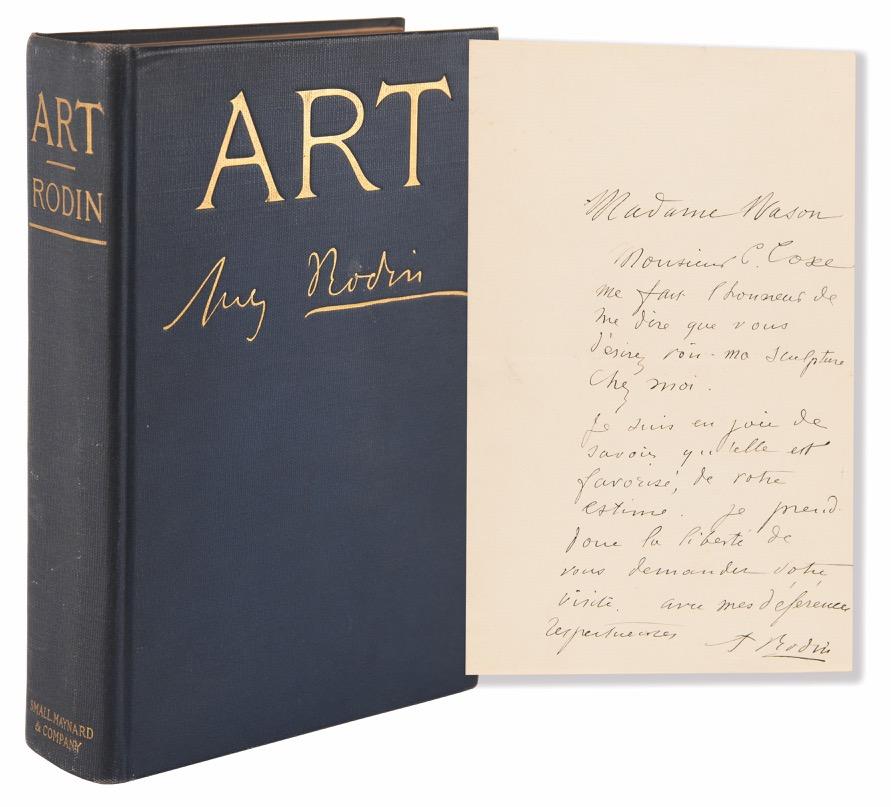 ART
RODIN
SMALL MAYNARD
& COMPANY
ART
Aug Rodin
Madame Nason
Monsieur C. Coxe
me fait l'honneur de
me dire que vous
désirez voir ma sculpture
chez moi.
Je suis en joie de
savoir qu'elle est
favorisé, de votre
estime. Je prend
donc la liberté de
vous demander votre
visite. avec mes déférences
respectueuses
A Rodin